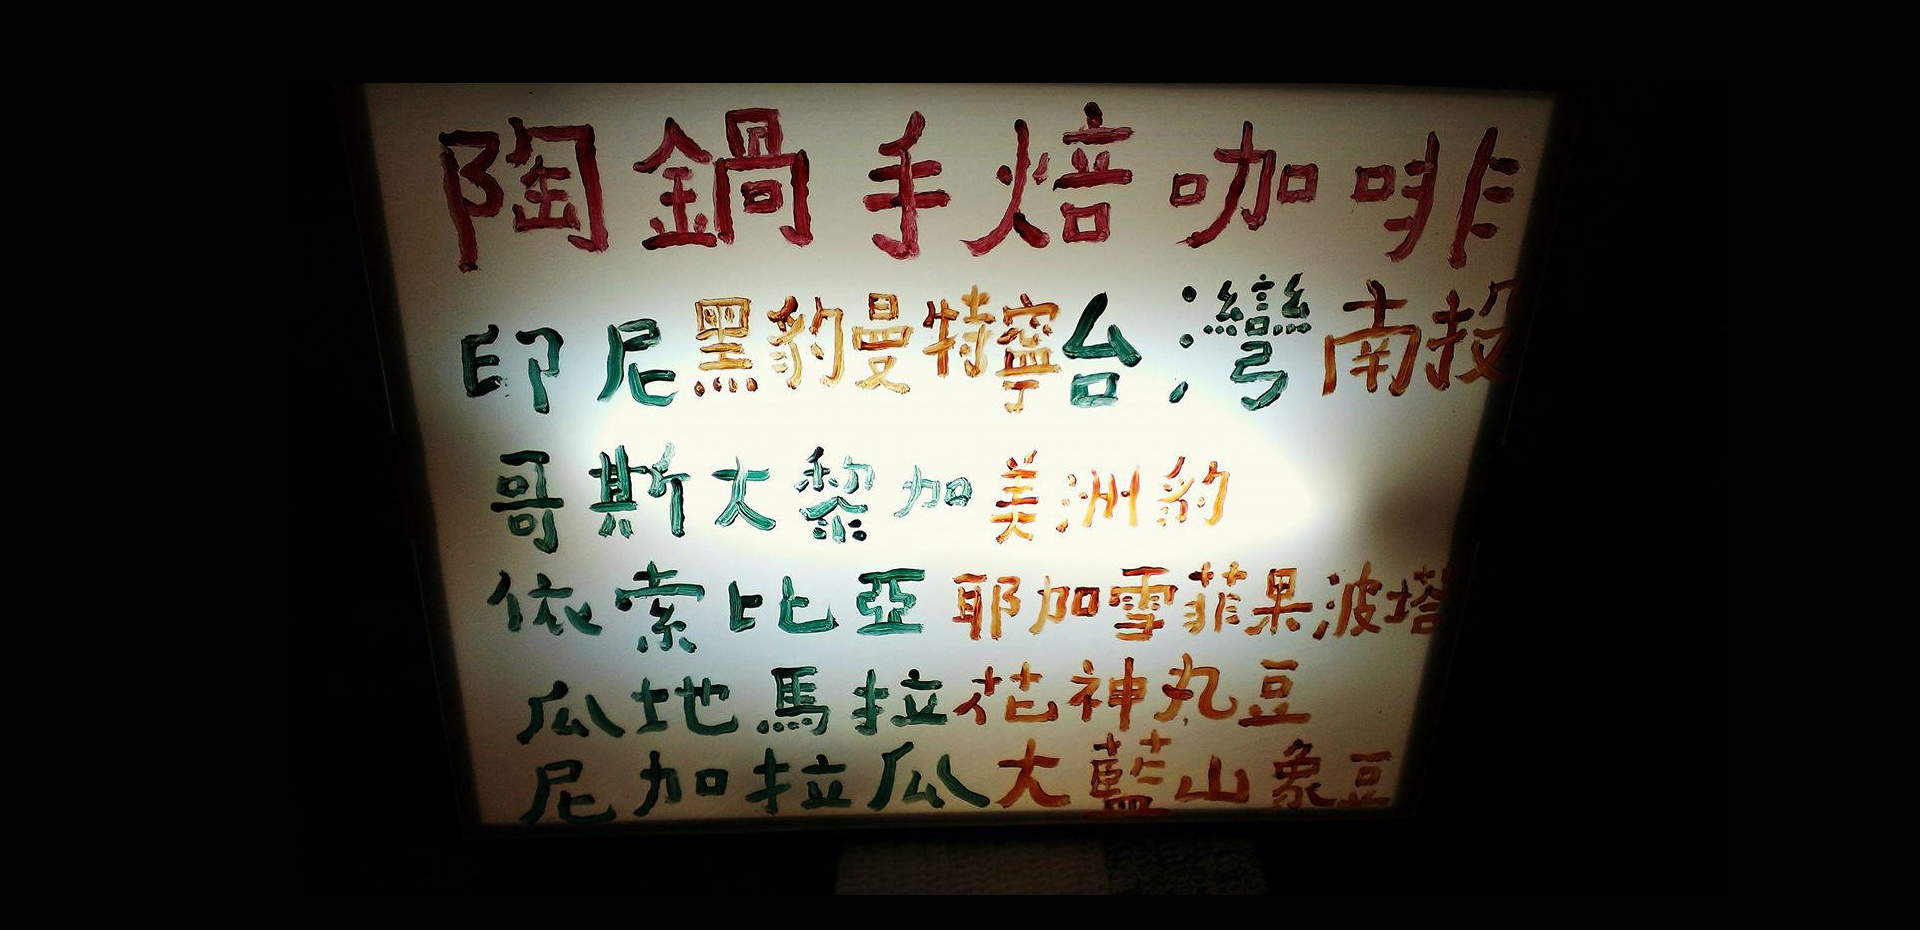 陶鍋手焙咖啡
印尼黑豹曼特寧台灣南投
哥斯大黎加美洲豹
依索比亞耶加雪菲果波塔
瓜地馬拉花神丸豆
尼加拉瓜大藍山象豆